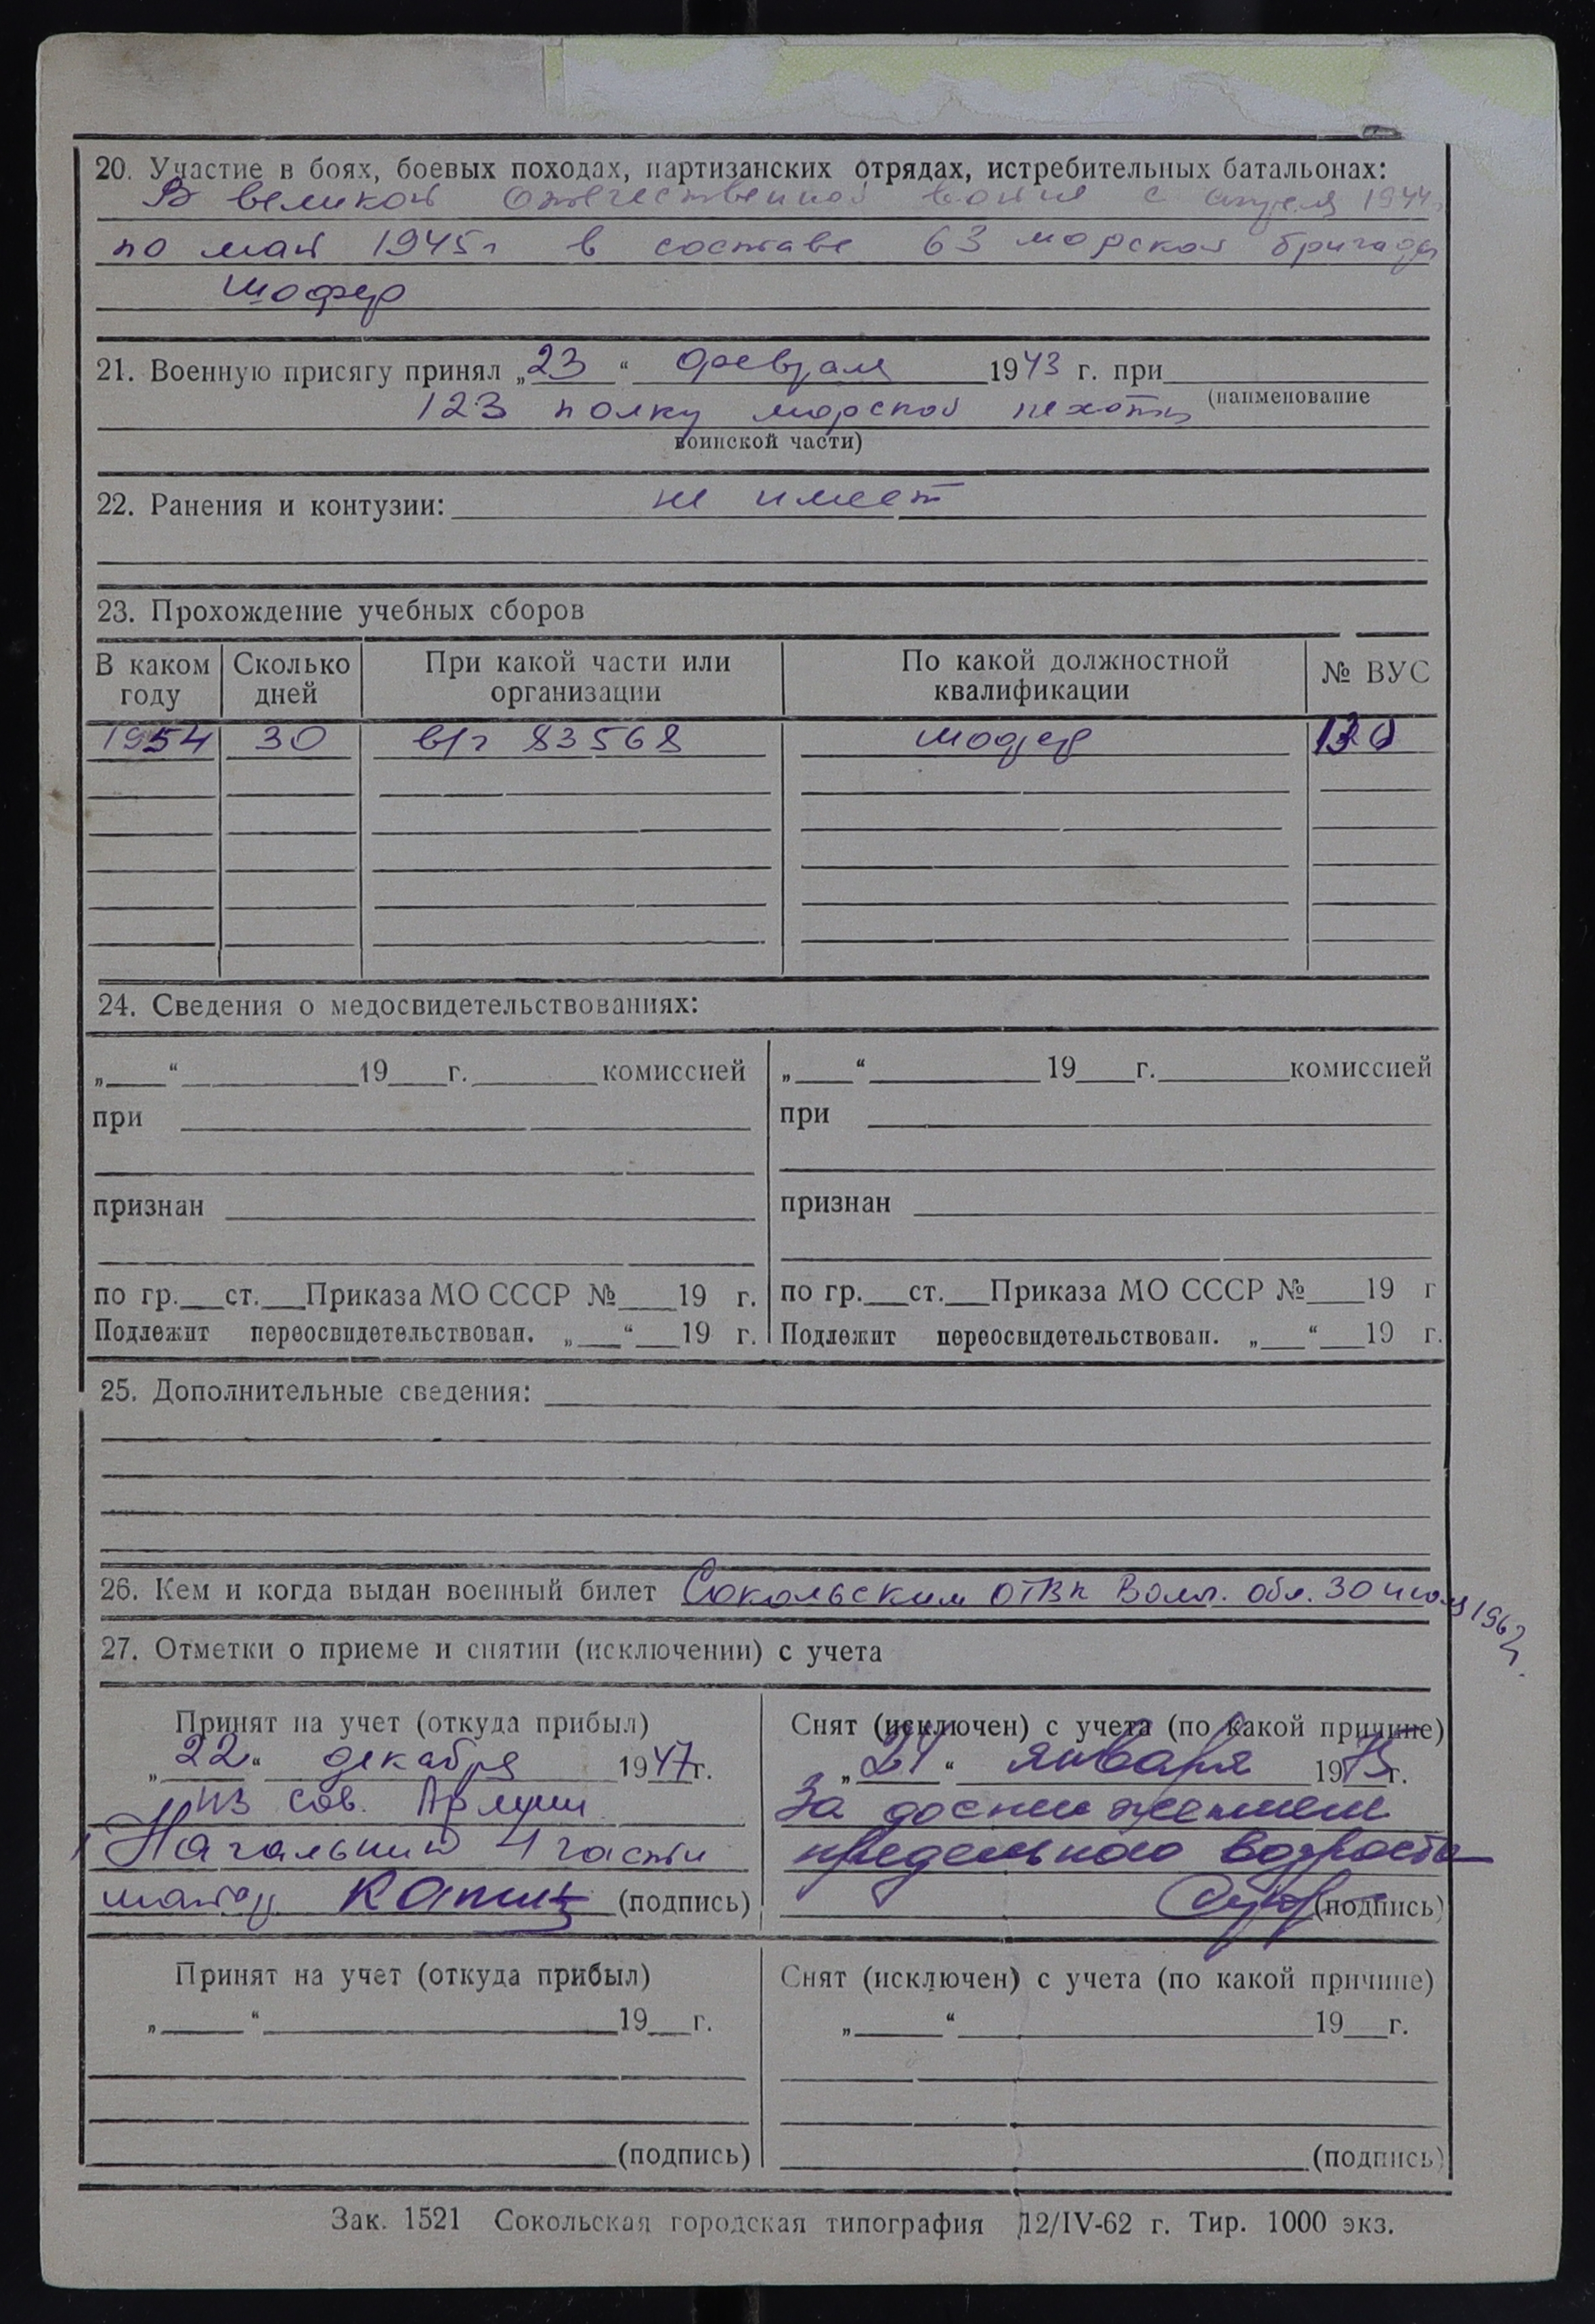 20. Участие в боях, боевых походах, партизанских отрядах, истребительных батальонах:
В великой отечественной войне с апреля 1944г
по май 1945г в составе 63 морской бригады
шофер
21. Военную присягу принял „23“ февраля 1943 г. при
123 полку морской пехоты (наименование
воинской части)
22. Ранения и контузии: не имеет
23. Прохождение учебных сборов
В каком году Сколько дней При какой части или организации По какой должностной квалификации № ВУС
1954 30 в/ч 83568 шофер
24. Сведения о медосвидетельствованиях:
„___“ ___ 19___г. ___ комиссией „___“ ___ 19___г. ___ комиссией
при при
признан признан
по гр.___ст.___Приказа МО СССР №___19 г. по гр.___ст.___Приказа МО СССР №___19 г
Подлежит переосвидетельствован. „___“___19 г. Подлежит переосвидетельствован. „___“___19 г.
25. Дополнительные сведения:
26. Кем и когда выдан военный билет Сокольским ОГВК Волог. обл. 30 июля 1962г.
27. Отметки о приеме и снятии (исключении) с учета
Принят на учет (откуда прибыл)
„22“ декабря 1947г.
из Сов. Армии
Начальник 4 части
(подпись)
Снят (исключен) с учета (по какой причине)
„24“ января 1975г.
За достижением
предельного возраста
(подпись)
Принят на учет (откуда прибыл) Снят (исключен) с учета (по какой причине)
„___“ ___ 19__г. „___“ ___ 19__г.
(подпись) (подпись)
Зак. 1521 Сокольская городская типография 12/IV-62 г. Тир. 1000 экз.